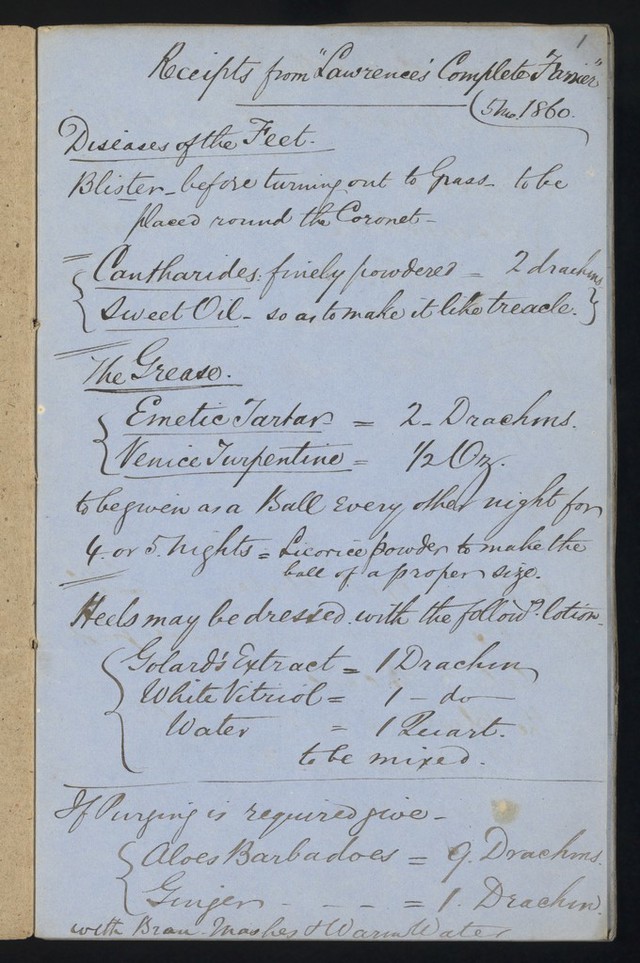 1
Receipts from "Lawrence's Complete Farrier"
5 Mo. 1860.
Diseases of the Feet.
Blister - before turning out to Grass - to be
placed round the Coronet -
Cantharides: finely powdered = 2 drachms
Sweet Oil - so as to make it like treacle.
The Grease.
Emetic Tartar = 2 - Drachms.
Venice Turpentine = 1/2 Oz.
to be given as a Ball Every other night for
4. or 5. Nights = Licorice powder to make the
ball of a proper size.
Heels may be dressed with the follow.g lotion -
Golard's Extract = 1 Drachm
White Vitriol = 1 - do -
Water = 1 Quart.
to be mixed.
If Purging is required give -
Aloes Barbadoes = 9. Drachms.
Ginger - - - = 1. Drachm.
with Bran Mashes & Warm Water